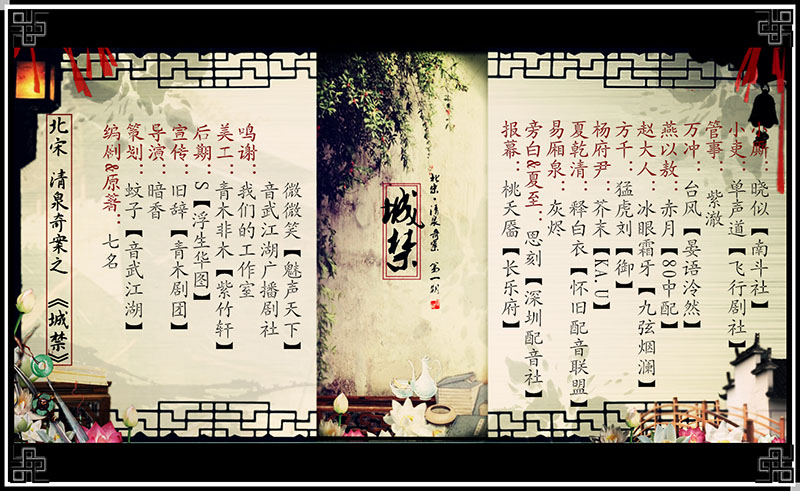 北宋 清泉奇案之 《城禁》
编剧&原著：七名
策划：蚊子【音武江湖】
导演：暗香
宣传：旧辞【青木剧团】
后期：S【浮生华图】
美工：青木非木【紫竹轩】
鸣谢：我们的工作室
音武江湖广播剧社
微微笑【魅声天下】
城禁
北宋·清泉奇案 第一期
报幕：桃夭靥【长乐府】
旁白&夏至：思刻【深圳配音社】
易厢泉：灰烬
夏乾清：释白衣【怀旧配音联盟】
杨府尹：芥末【KA.U】
方千：猛虎刘【御】
赵大人：冰眼霜牙【九弦烟澜】
燕以敖：赤月【80中配】
万冲：台风【晏语泠然】
管事：紫澈
小吏：单声道【飞行剧社】
小厮：晓似【南斗社】